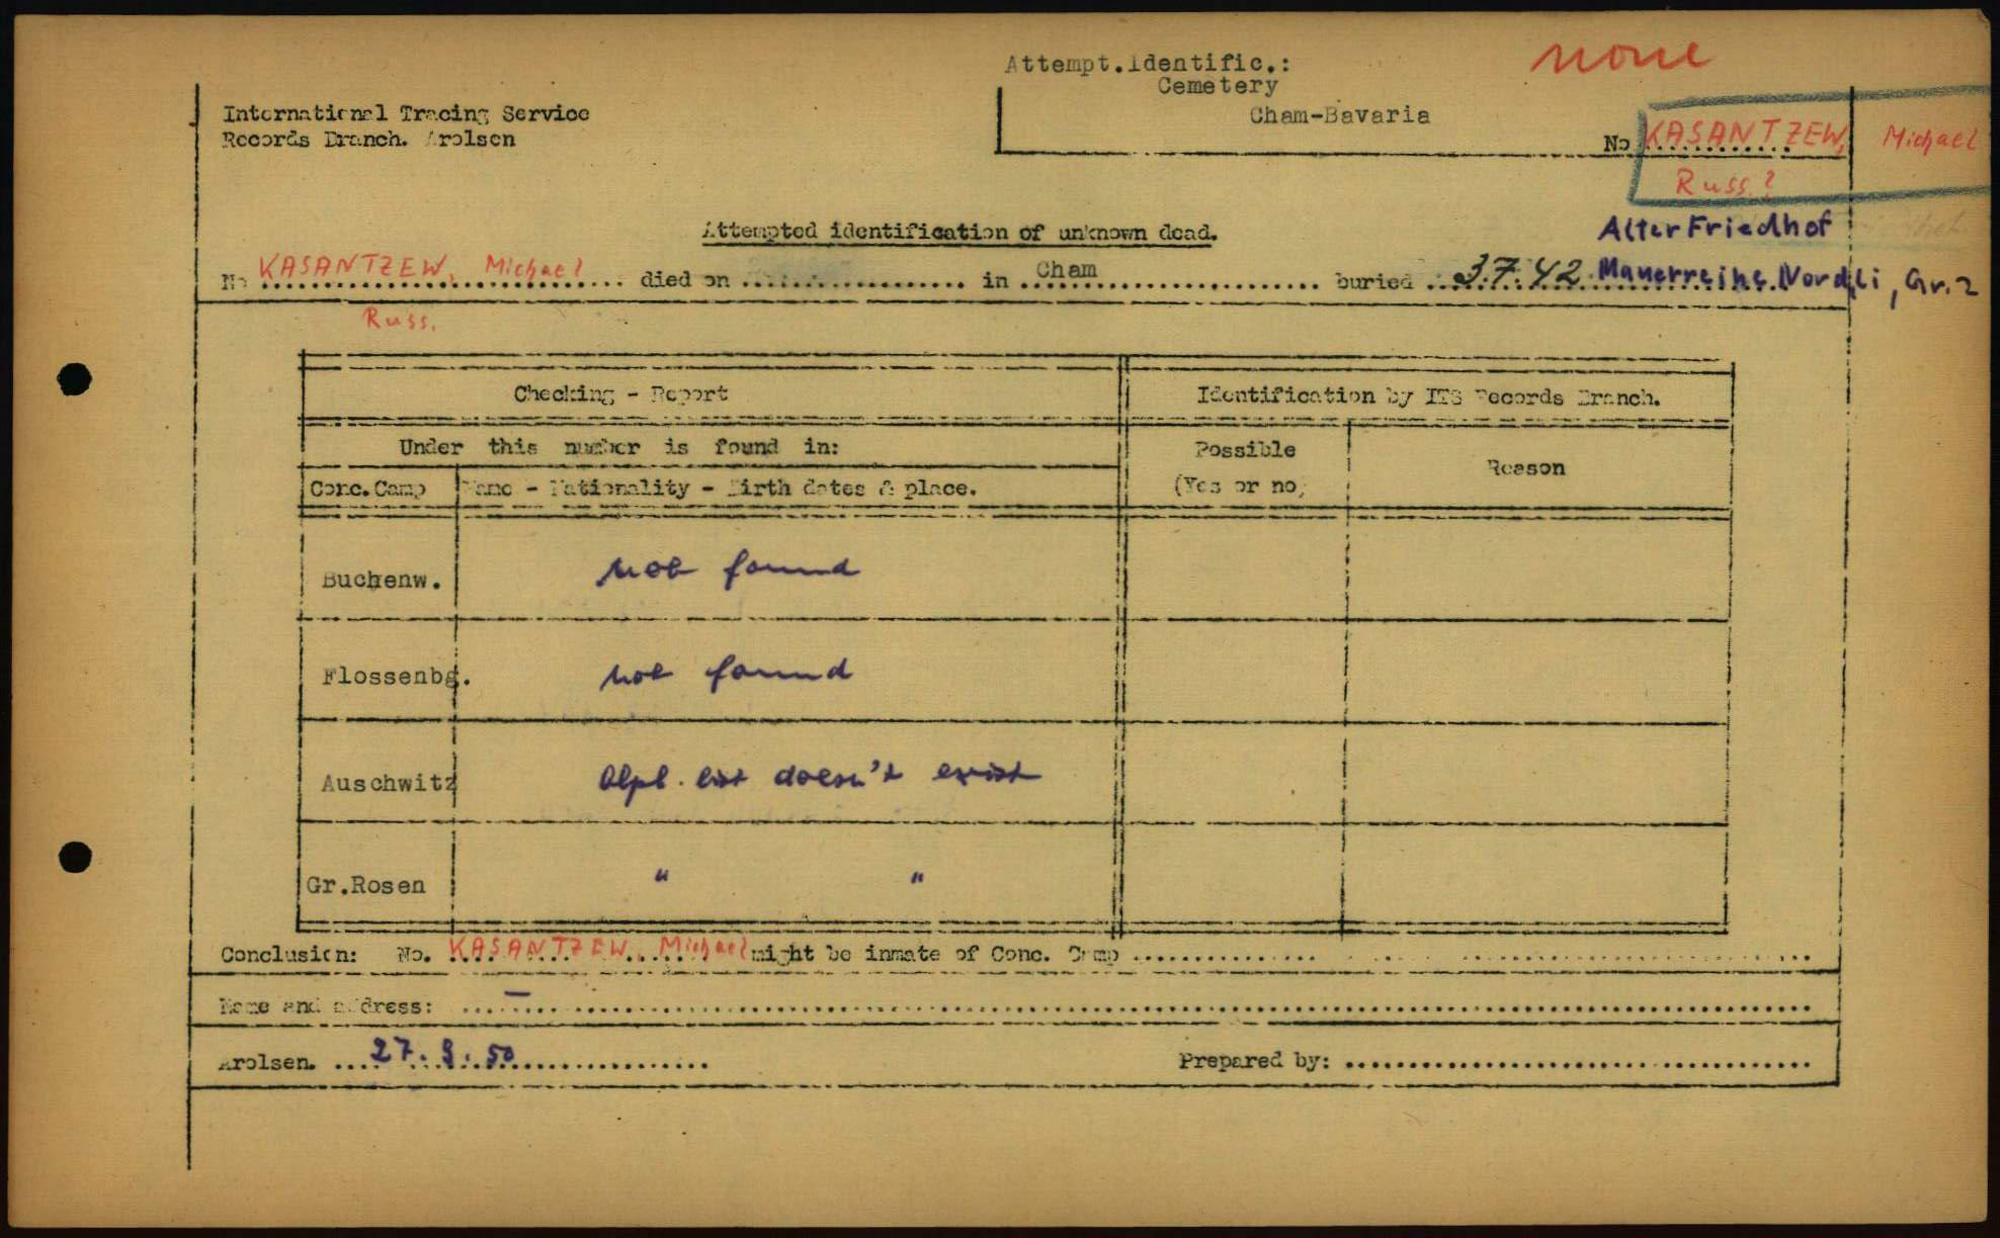 none
Attempt.Identific.:
Cemetery
Cham-Bavaria
International Tracing Service
Records Branch. Arolsen
No KASANTZEW, Michael
Russ.?
Attempted identification of unknown dead.
Alter Friedhof
No KASANTZEW, Michael died on ........ in Cham ........ buried 3.7.42 Mauerreihe Nord, li, Gr. 2
Russ.
Checking - Report
Identification by ITS Records Branch.
Under this number is found in:
Possible
(Yes or no)
Reason
Conc.Camp
Name - Nationality - Birth dates & place.
Buchenw. not found
Flossenbg. not found
Auschwitz Alph. list doesn't exist
Gr.Rosen " "
Conclusion: No. KASANTZEW, Michael might be inmate of Conc. Camp ........
Name and address: –
Arolsen. 27. 9. 50
Prepared by: ........